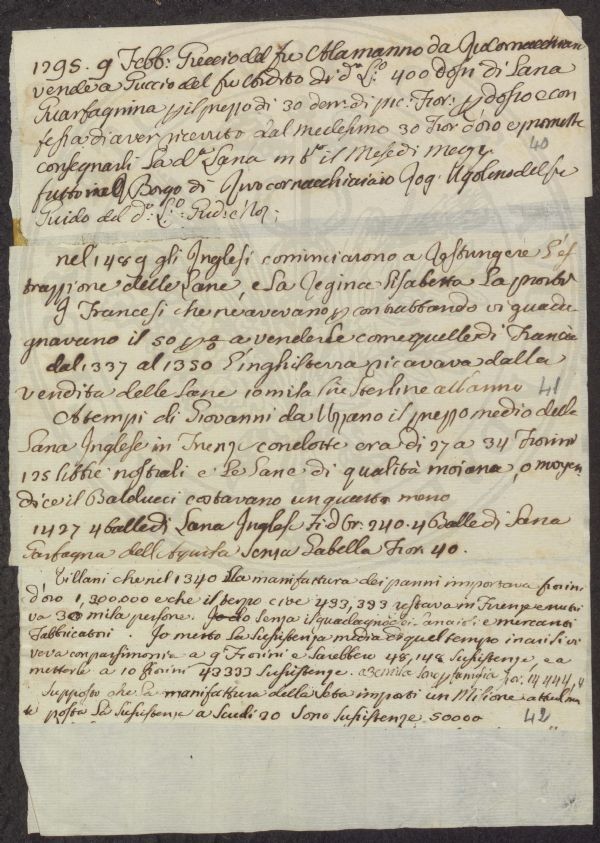 1295. 9 Febb: Puccio del fu Alamanno da
vende a Puccio del fu di d.º L.º 400 dosin di Lana
Guarfagnina p il prezzo di 30 den: di pic. Fior: p dosso e con
fessa di aver ricevuto dal medesimo 30 Fior d'oro e promette
40
consegnarli la d.ª Lana in tº il Mese di
fuori nel Borgo di Rog: Ugolino del fu
Guido del d.º L.º Giud: e Not:
nel 1489 gli Inglesi cominciarono a restringere l'es
trazzione delle Lane, e la Regina Elisabetta la proibì
I Francesi che ne avevano p contrabbando vi guada
gnavano il 50 p a venderle come quelle di Francia
dal 1337 al 1350 l'inghilterra ricavava dalla
vendita delle Lane 10 mila lire sterline all'anno
41
A tempi di Giovanni da Uzzano il prezzo medio delle
Lana Inglese in Firenze condotte era di 27 a 34 Fiorini
125 libbre nostrali e le Lane di qualità moiana, o mojen
dice il Balducci costavano un quarto meno
1427 4 balle di Lana Inglese F.di Gr: 240. 4 Balle di Lana
Garfagna dell'Aquila senza Gabella Fior 40.
Villani che nel 1340 la manifattura dei panni importava fiorini
d'oro 1,300.000 e che il terzo cioè 433,333 restava in Firenze e nutri
va 30 mila persone. senza il guadagno dei e mercanti
Fabbricatori. Io metto la sussistenza media di quel tempo in cui si vi
veva con parsimonia a 9 Fiorini e sarebbero 48,148 sussistenze, e a
metterle a 10 fiorini 43333 sussistenze. a 3 famiglia 14,444,4
Supposto che la manifattura della Seta importi un Milione
posta la sussistenza a Scudi 20 sono sussistenze 50000
42